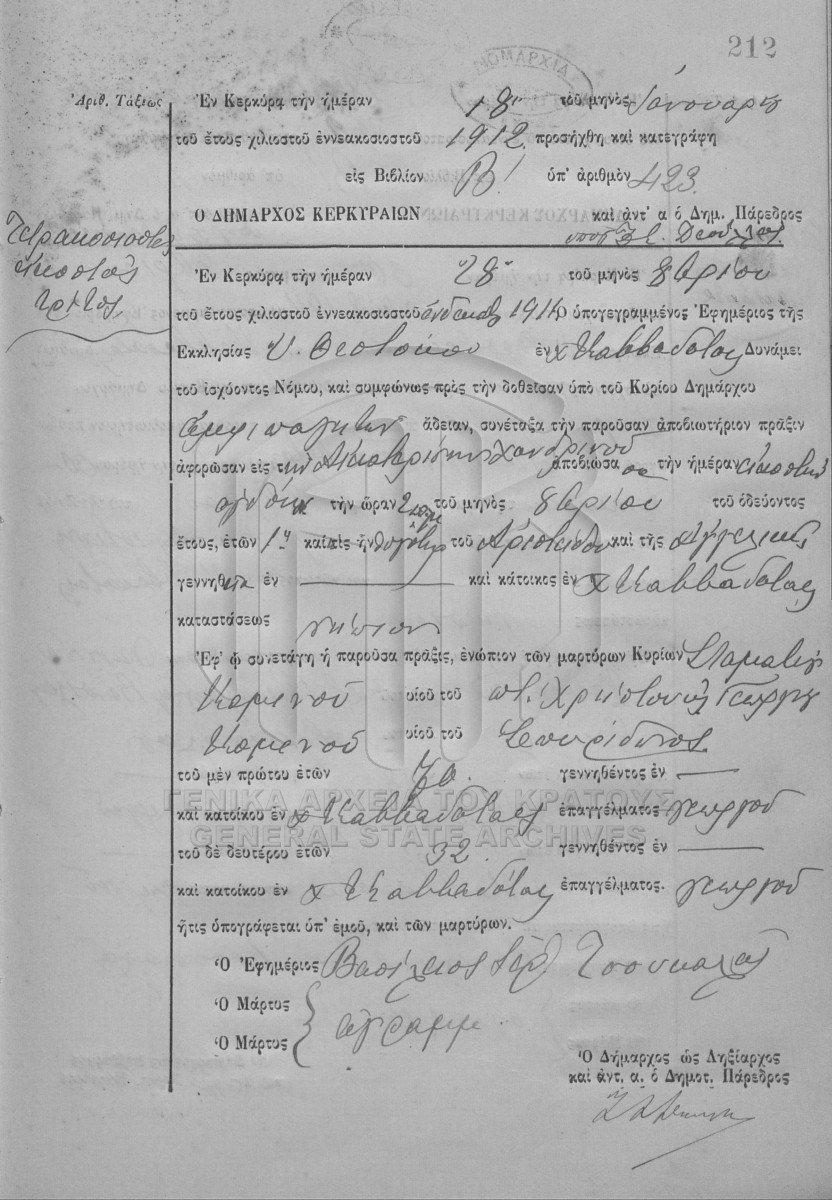 212
ΝΟΜΑΡΧΙΑ
Ἀριθ. Τάξεως
Ἐν Κερκύρᾳ τὴν ἡμέραν 18 τοῦ μηνὸς Ἰανουαρίου
τοῦ ἔτους χιλιοστοῦ ἐννεακοσιοστοῦ 1912 προσήχθη καὶ κατεγράφη
εἰς Βιβλίον Β! ὑπ' ἀριθμὸν 423.
Ο ΔΗΜΑΡΧΟΣ ΚΕΡΚΥΡΑΙΩΝ καὶ ἀντ' α ὁ Δημ. Πάρεδρος
Τετρακοσιοστὸς
εἰκοστὸς
τρίτος
Ἐν Κερκύρᾳ τὴν ἡμέραν 28 τοῦ μηνὸς 8βρίου
τοῦ ἔτους χιλιοστοῦ ἐννεακοσιοστοῦ ἑνδεκάτου 1911 Ὁ ὑπογεγραμμένος Ἐφημέριος τῆς
Ἐκκλησίας Ὑ. Θεοτόκου ἐν χ Καββαδάταις Δυνάμει
τοῦ ἰσχύοντος Νόμου, καὶ συμφώνως πρὸς τὴν δοθεῖσαν ὑπὸ τοῦ Κυρίου Δημάρχου
ἄδειαν, συνέταξα τὴν παροῦσαν ἀποβιωτήριον πρᾶξιν
ἀφορῶσαν εἰς τὴν Αἰκατερίνην Χανδρινοῦ ἀποβιώσασα τὴν ἡμέραν εἰκοστὴν
ὀγδόην τὴν ὥραν 2 τοῦ μηνὸς 8βρίου τοῦ ὁδεύοντος
ἔτους, ἐτῶν 1 καὶ τὶς ἦν θυγάτηρ τοῦ Ἀριστείδου καὶ τῆς Ἀγγελικῆς
γεννηθεῖσα ἐν καὶ κάτοικος ἐν χ Καββαδάταις
καταστάσεως νήπιον
Ἐφ' ᾧ συνετάγη ἡ παροῦσα πρᾶξις, ἐνώπιον τῶν μαρτύρων Κυρίων Σταματίου
Καμινοῦ υἱοῦ τοῦ ποτ. Χρήστου καὶ Γεωργίου
Καμινοῦ υἱοῦ τοῦ Σπυρίδωνος
τοῦ μὲν πρώτου ἐτῶν 70 γεννηθέντος ἐν
ΓΕΝΙΚΑ ΑΡΧΕΙΑ ΤΟΥ ΚΡΑΤΟΥΣ
καὶ κατοίκου ἐν χ Καββαδάταις ἐπαγγέλματος γεωργοῦ
GENERAL STATE ARCHIVES
τοῦ δὲ δευτέρου ἐτῶν 32 γεννηθέντος ἐν
καὶ κατοίκου ἐν χ Καββαδάταις ἐπαγγέλματος. γεωργοῦ
ἥτις ὑπογράφεται ὑπ' ἐμοῦ, καὶ τῶν μαρτύρων.
Ὁ Ἐφημέριος Βασίλειος Ἱερ. Τσουκαλᾶς
Ὁ Μάρτυς
ἀγράμμ.
Ὁ Μάρτυς
Ὁ Δήμαρχος ὡς Ληξίαρχος
καὶ ἀντ. α. ὁ Δημοτ. Πάρεδρος